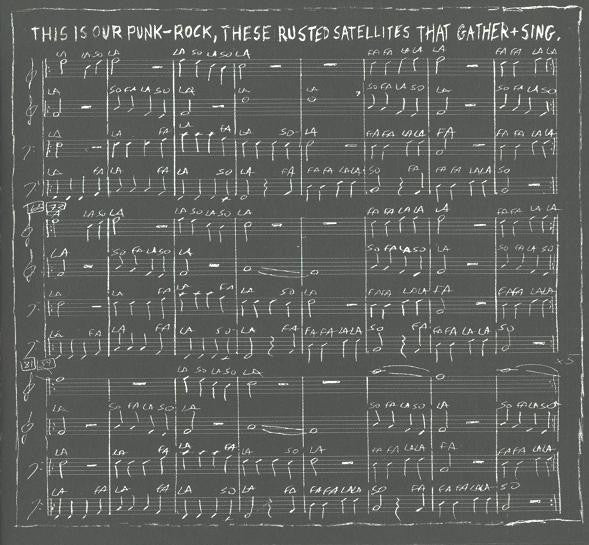 THIS IS OUR PUNK-ROCK, THESE RUSTED SATELLITES THAT GATHER+SING.
LA LA SO LA LA SO LA SO LA FA FA LA LA LA FA FA LA LA
LA SO FA LA SO LA LA LA SO FA LA SO LA SO FA LA SO
LA LA FA LA FA LA SO LA FA FA LA LA FA FA FA LA LA
LA FA LA FA LA SO LA FA FA FA LA LA SO FA FA FA LA LA SO
LA SO LA LA SO LA SO LA FA FA LA LA LA FA FA LA LA
LA SO FA LA SO LA SO FA LA SO LA SO FA LA SO
LA LA FA LA FA LA SO LA FA FA LA LA FA FA FA LA LA
LA FA LA FA LA SO LA FA FA FA LA LA SO FA FA FA LA LA SO
x5
LA SO LA SO LA
LA SO FA LA SO LA SO FA LA SO LA SO FA LA SO
LA LA FA LA FA LA SO LA FA FA LA LA FA FA FA LA LA
LA FA LA FA LA SO LA FA FA FA LA LA SO FA FA FA LA LA SO